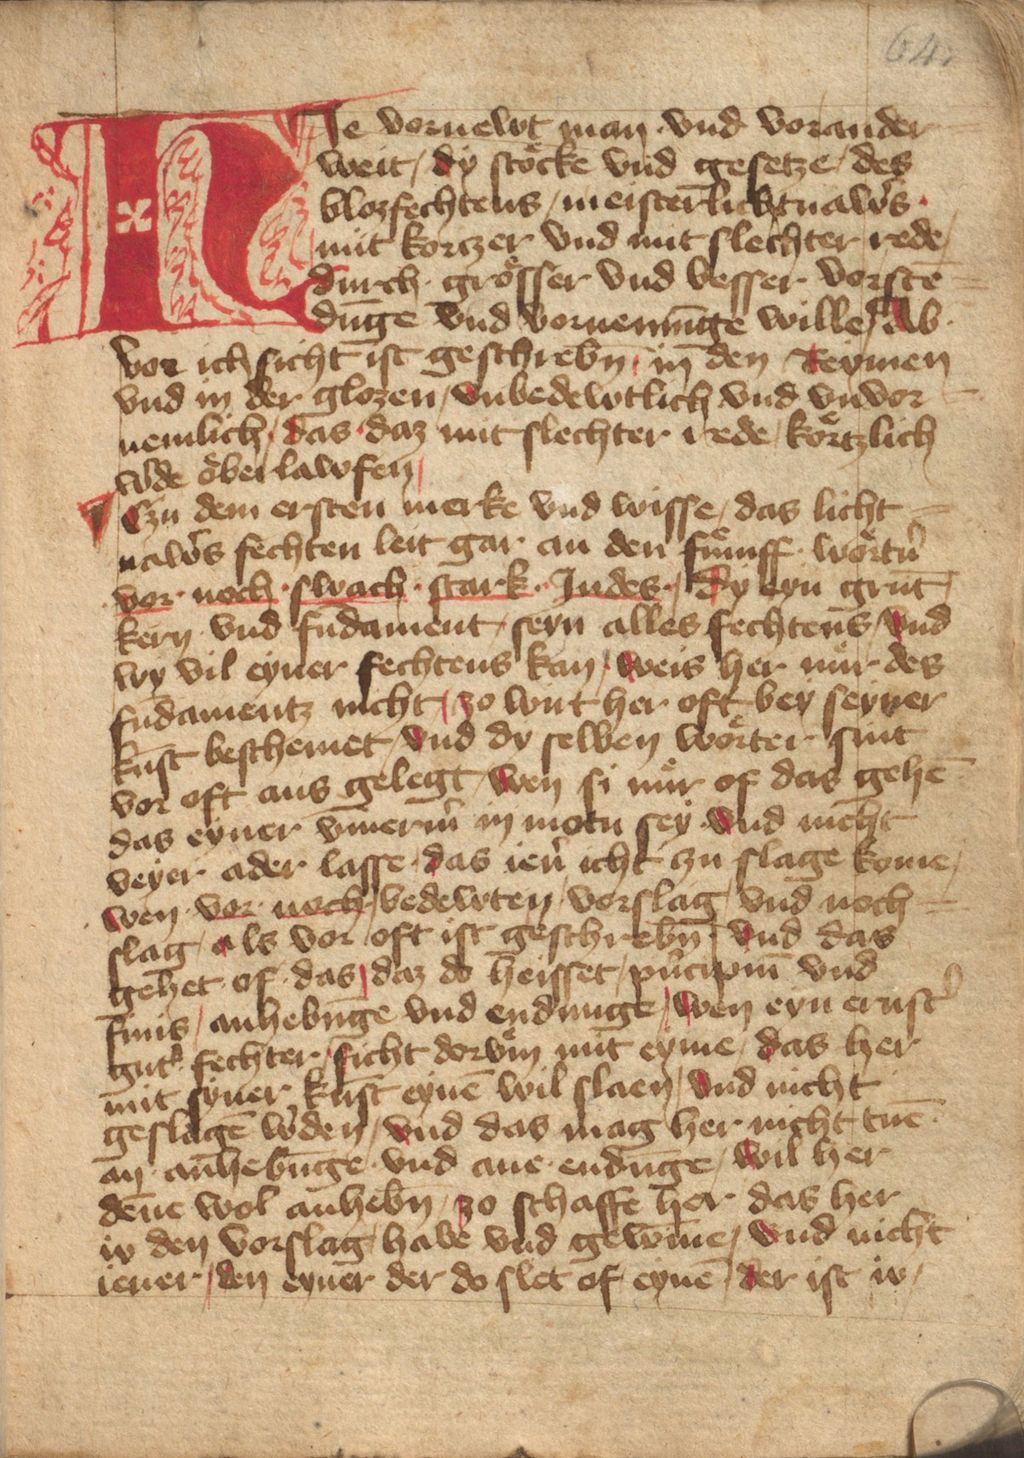 64.
HIe vornewt man vnd vorander
weit / dy stöcke vnd gesetze / des
blozfechtens / meister lichtnawers ·
mit kortzer vnd mit slechter rede /
durch grösser vnd besser vorste
dūge vnd vornemūge wille / Ab ·
vor ich sicht ist geschrebn̄ / in den Reymen
vnd in der glozen / vnbedewtlich vnd vnvor
nemlich / das daz mit slechter rede / körtzlich
w̾de öberlawfen /
Czu dem ersten merke vnd wisse / das licht
naw̾s fechten leit gar an den fümff wörtn̾
vor · noch · swach · stark · Indes · / dy eyn grūt
kern vnd fūdament / seyn alles fechtens / vnd
wy vil eyner fechtens kan / weis her nür des
fūdamentz nicht / zo wirt her oft bey seyner
kūst beschemet / vnd dy selben wörter sint
vor oft aus gelegt / wen si nür of das gehē
das eyner ummerm̾ in motu sey · vnd nicht
veyer ader lasse · das ien̾ icht zu slage kome /
wen vor noch / bedewten / vorslag / vnd noch
slag / als vor oft ist geschrebn̄ · vnd das
gehet of das / daz do heisset / pn̾cipiū vnd
finis / anhebūge vnd endunge / wen eyn ernst̾
gut̾ fechter / ficht dorvm̄ mit eyme / das her
mit syner kūst eynē wil slaen / vnd nicht
geslagē w̾den / vnd das mag her nicht tuē ·
an anhebūge · vnd ane endūge / wil her
denne wol anhebn̄ / zo schaffe her das her
io den vorslag habe vnd gewīne / vnd nicht
iener / den eyner der do slet of eynē der ist io /